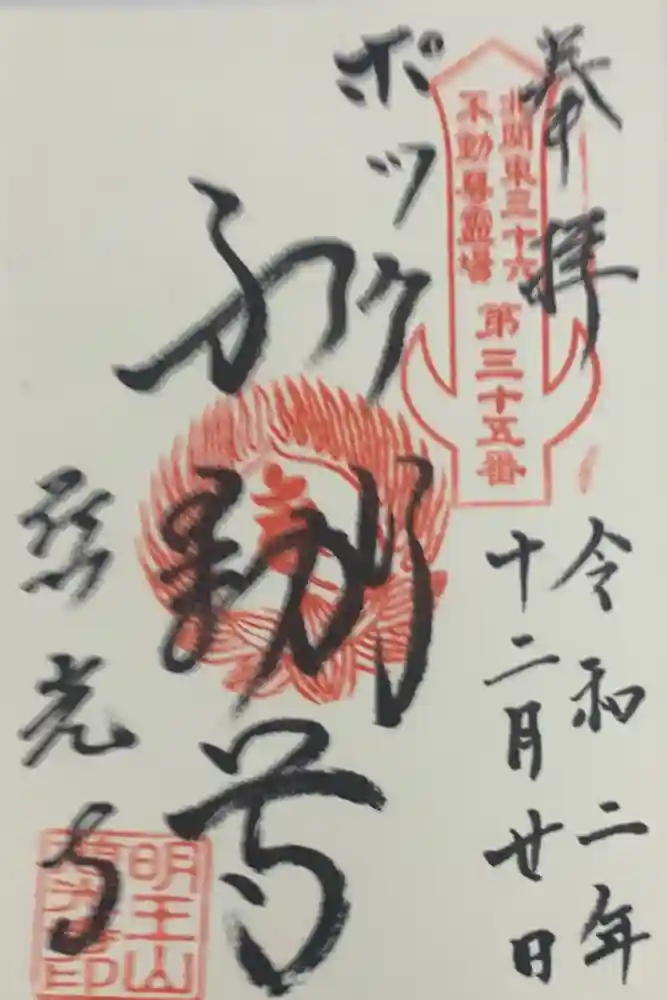 奉拝
令和二年
十二月廿日
北関東三十六
不動尊霊場
第三十五番
ポックリ
不動尊
弥光寺
明王山